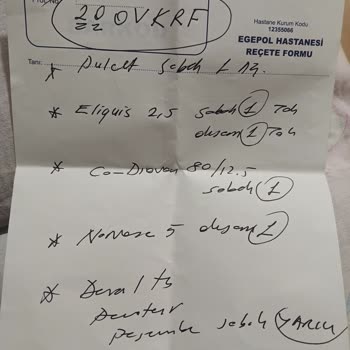 20 OVKRF
Hastane Kurum Kodu
12355066
EGEPOL HASTANESİ
REÇETE FORMU
Tanı:
* sabah 1
* Eliquis 2,5 sabah 1 Tok
akşam 1 Tok
* Co-Diovan 80/12.5
sabah 1
* Norvasc 5 akşam 1
*
Perşembe sabah YARIM